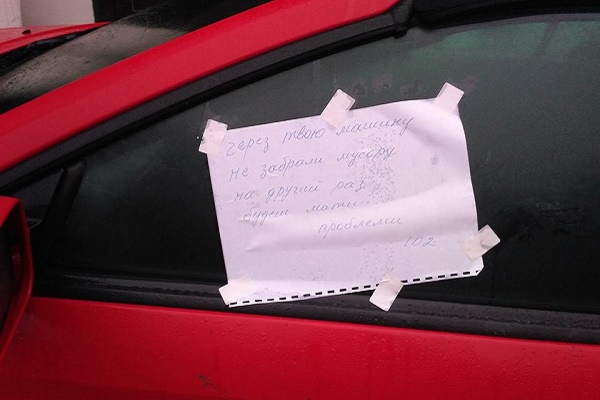 через твою машину
не забрали мусору
на другий раз
будеш мати
проблеми
102